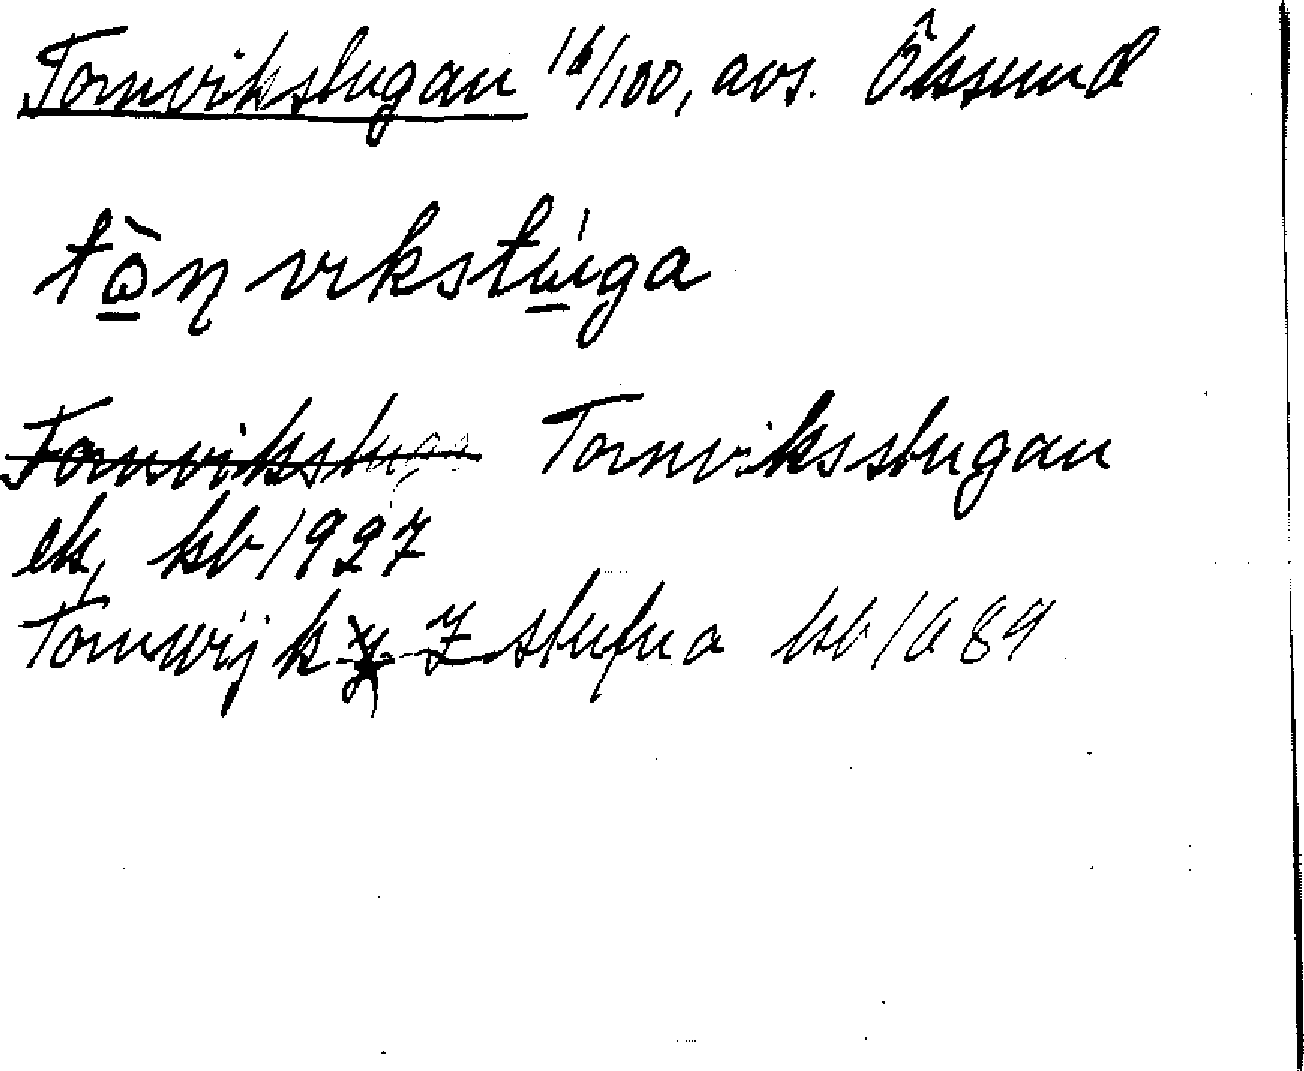 Tornvikstugan 16/100, avs. Öksund
tǫ̀ṇvikstú̱ga
Tornvikstuga Tornviksstugan
ek, kb 1927
Tornwijk stufua kb 1689